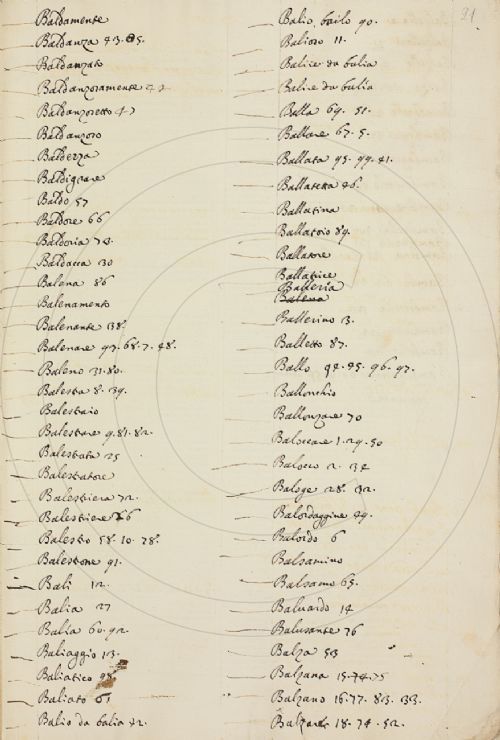 21
Baldamente
Baldanza 43. 85.
Baldanzato
Baldanzosamente 42
Baldanzosetto 47
Baldanzoso
Baldezza
Baldigrare
Baldo 57
Baldore 66
Baldoria 74.
Baldacca 30
Balena 86
Balenamento
Balenante 38.
Balenare 97. 68. 7. 48.
Baleno 31. 80.
Balestra 8. 39.
Balestraio
Balestrare 9. 81. 82.
Balestrata 25
Balestratore
Balestriera 72.
Balestriere 66
Balestro 58. 10. 78.
Balestrone 91.
Bali 12.
Balia 27
Balia 60. 92.
Baliaggio 13.
Baliatico 98
Baliato 61
Balio da balia 42.
Balio, bailo 90.
Balioso 11.
Balire da balia
Balire da balia
Balla 69. 51.
Ballare 67. 5.
Ballata 95. 99. 41.
Ballatetta 46.
Ballatina
Ballatoio 89.
Ballatore
Ballatrice
Balleria
Ballerino 3.
Balletto 87.
Ballo 94. 45. 96. 97.
Ballonchio
Ballonzare 70
Baloccare 1. 29. 50
Balocco 2. 34
Baloge 28. 32.
Balordaggine 49.
Balordo 6
Balsamino
Balsamo 65.
Baluardo 14
Balusante 76
Balza 53
Balzana 15. 74. 75
Balzano 16. 77. 83. 33.
Balzare 18. 74. 52.